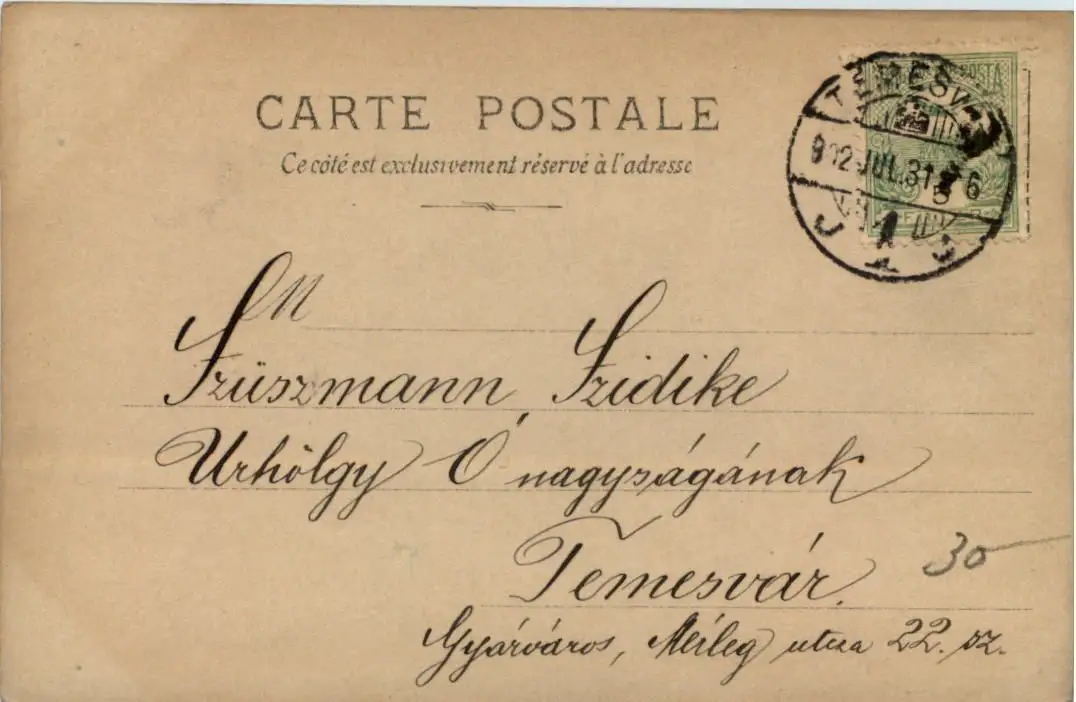 CARTE POSTALE
Ce côté est exclusivement réservé à l'adresse
POSTA
TEMESV
902 JUL. 31
6
1
M
Szüszmann Szidike
Urhölgy Ő nagyságának
Temesvár
Gyárváros, utcza 22. sz.
30